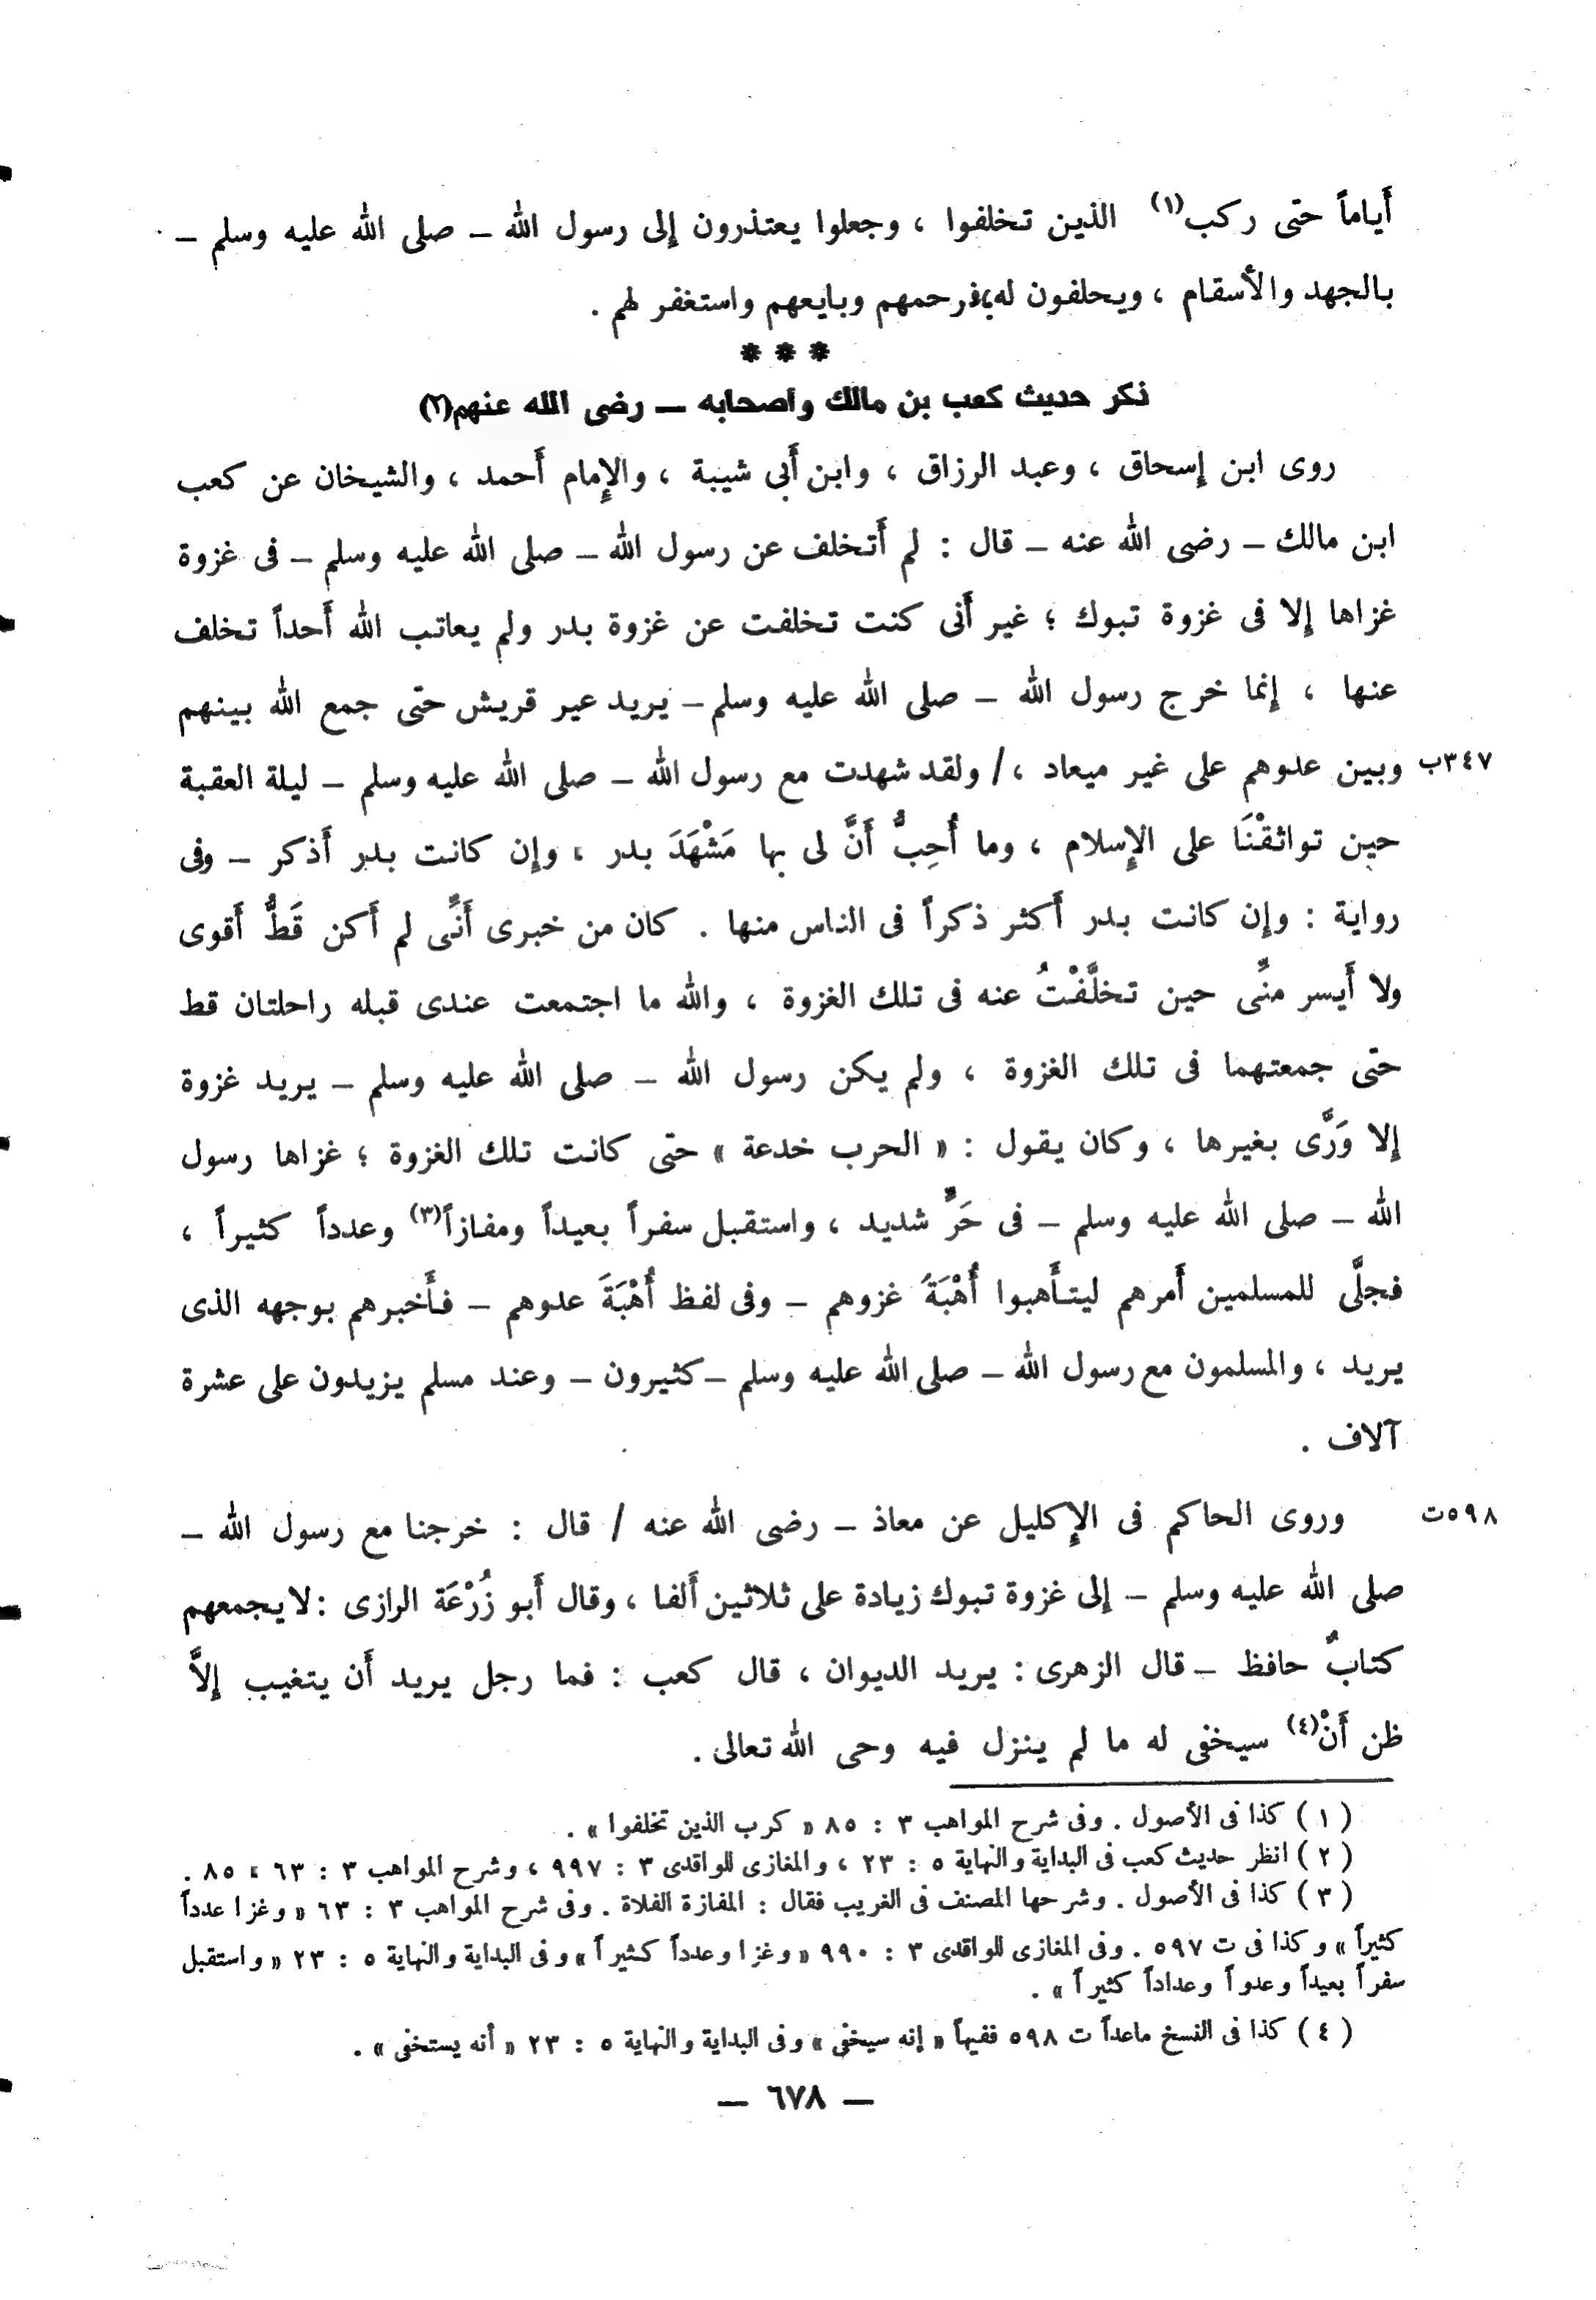 أَياماً حتى ركب(١) الذين تخلفوا ، وجعلوا يعتذرون إلى رسول الله – صلى الله عليه وسلم –
بالجهد والأسقام ، ويحلفون له، فرحمهم وبايعهم واستغفر لهم .
* * *
ذكر حديث كعب بن مالك وأصحابه – رضى الله عنهم(٢)
روى ابن إسحاق ، وعبد الرزاق ، وابن أَبى شيبة ، والإِمام أَحمد ، والشيخان عن كعب
ابن مالك – رضى الله عنه – قال : لم أَتخلف عن رسول الله – صلى الله عليه وسلم – فى غزوة
غزاها إِلا فى غزوة تبوك ؛ غير أَنى كنت تخلفت عن غزوة بدر ولم يعاتب الله أَحداً تخلف
عنها ، إِنما خرج رسول الله – صلى الله عليه وسلم – يريد عير قريش حتى جمع الله بينهم
٣٤٧ب وبين عدوهم على غير ميعاد ، / ولقد شهدت مع رسول الله – صلى الله عليه وسلم – ليلة العقبة
حين تواثقْنَا على الإِسلام ، وما أُحِبُّ أَنَّ لى بها مَشْهَدَ بدر ، وإِن كانت بدر أَذكر – وفى
رواية : وإِن كانت بدر أَكثر ذكراً فى الناس منها . كان من خبرى أَنِّى لم أَكن قَطُّ أَقوى
ولا أَيسر منِّى حين تخلَّفْتُ عنه فى تلك الغزوة ، والله ما اجتمعت عندى قبله راحلتان قط
حتى جمعتهما فى تلك الغزوة ، ولم يكن رسول الله – صلى الله عليه وسلم – يريد غزوة
إِلا وَرَّى بغيرها ، وكان يقول : « الحرب خدعة » حتى كانت تلك الغزوة ؛ غزاها رسول
الله – صلى الله عليه وسلم – فى حَرٍّ شديد ، واستقبل سفراً بعيداً ومفازاً(٣) وعدداً كثيراً ،
فجلَّى للمسلمين أَمرهم ليتأَهبوا أُهْبَةَ غزوهم – وفى لفظ أُهْبَةَ عدوهم – فأَخبرهم بوجهه الذى
يريد ، والمسلمون مع رسول الله – صلى الله عليه وسلم – كثيرون – وعند مسلم يزيدون على عشرة
آلاف .
٥٩٨ت وروى الحاكم فى الإِكليل عن معاذ – رضى الله عنه / قال : خرجنا مع رسول الله –
صلى الله عليه وسلم – إِلى غزوة تبوك زيادة على ثلاثين أَلفا ، وقال أَبو زُرْعَة الرازى : لا يجمعهم
كتابٌ حافظ – قال الزهرى : يريد الديوان ، قال كعب : فما رجل يريد أَن يتغيب إِلاَّ
ظن أَنْ(٤) سيخفى له ما لم ينزل فيه وحى الله تعالى .
( ١ ) كذا فى الأصول . وفى شرح المواهب ٣ : ٨٥ « كرب الذين تخلفوا » .
( ٢ ) انظر حديث كعب فى البداية والنهاية ٥ : ٢٣ ، والمغازى للواقدى ٣ : ٩٩٧ ، وشرح المواهب ٣ : ٦٣ ، ٨٥ .
( ٣ ) كذا فى الأصول . وشرحها المصنف فى الغريب فقال : المفازة الفلاة . وفى شرح المواهب ٣ : ٦٣ « وغزا عدداً
كثيراً » وكذا فى ت ٥٩٧ . وفى المغازى للواقدى ٣ : ٩٩٠ « وغزا وعدداً كثيراً » وفى البداية والنهاية ٥ : ٢٣ « واستقبل
سفراً بعيداً وعدواً وعداداً كثيراً » .
( ٤ ) كذا فى النسخ ماعداً ت ٥٩٨ ففيهاً « إنه سيخفى » وفى البداية والنهاية ٥ : ٢٣ « أنه يستخفى » .
— ٦٧٨ —